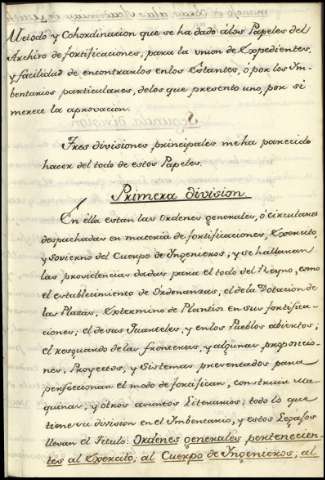 Metodo y Cohordinacion que se ha dado álos Papeles del
Archivo de fortificaciones, para la union de Expedientes,
y facilidad de encontrarlos enlos Estantes, ó por los Im-
bentarios particulares, delos que presento uno, por si
merece la aprovacion.
Tres divisiones principales me ha parecido
hacer del todo de estos Papeles.
Primera division
En élla estan las ordenes generales, ó circulares
despachadas en materia de fortificaciones, Exercito,
y Govierno del Cuerpo de Ingenieros, y se hallaran
las providencias dadas para el todo del Reyno, como
el establecimiento de Ordenanzas, el de la Dotacion de
las Plazas, Exterminio de Plantíos en sus fortifica-
ciones; el de sus Quarteles, y enlos Pueblos abiertos;
el resguardo de las fronteras, y algunas proposicio-
nes, Proyectos, y Sistemas presentados para
perfeccionar el modo de fortificar, construir Ma-
quinas, y otros asuntos Literarios; todo lo que
tiene su division en el Imbentario, y estos Legajos
llevan el Titulo: Ordenes generales pertenecien-
tes al Exercito; al Cuerpo de Ingenieros, al